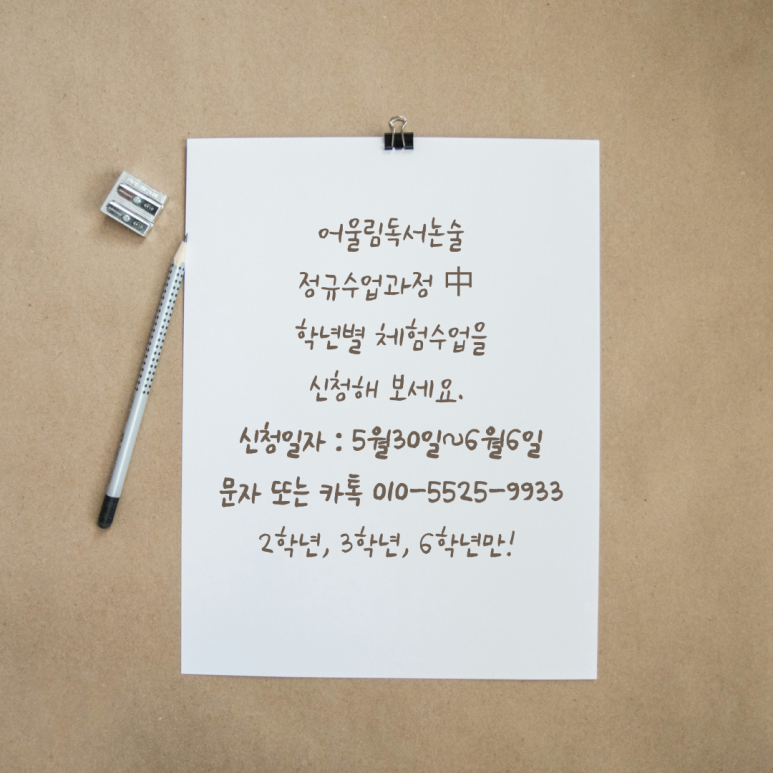 어울림독서논술
정규수업과정 中
학년별 체험수업을
신청해 보세요.
신청일자 : 5월30일~6월6일
문자 또는 카톡 010-5525-9933
2학년, 3학년, 6학년만!